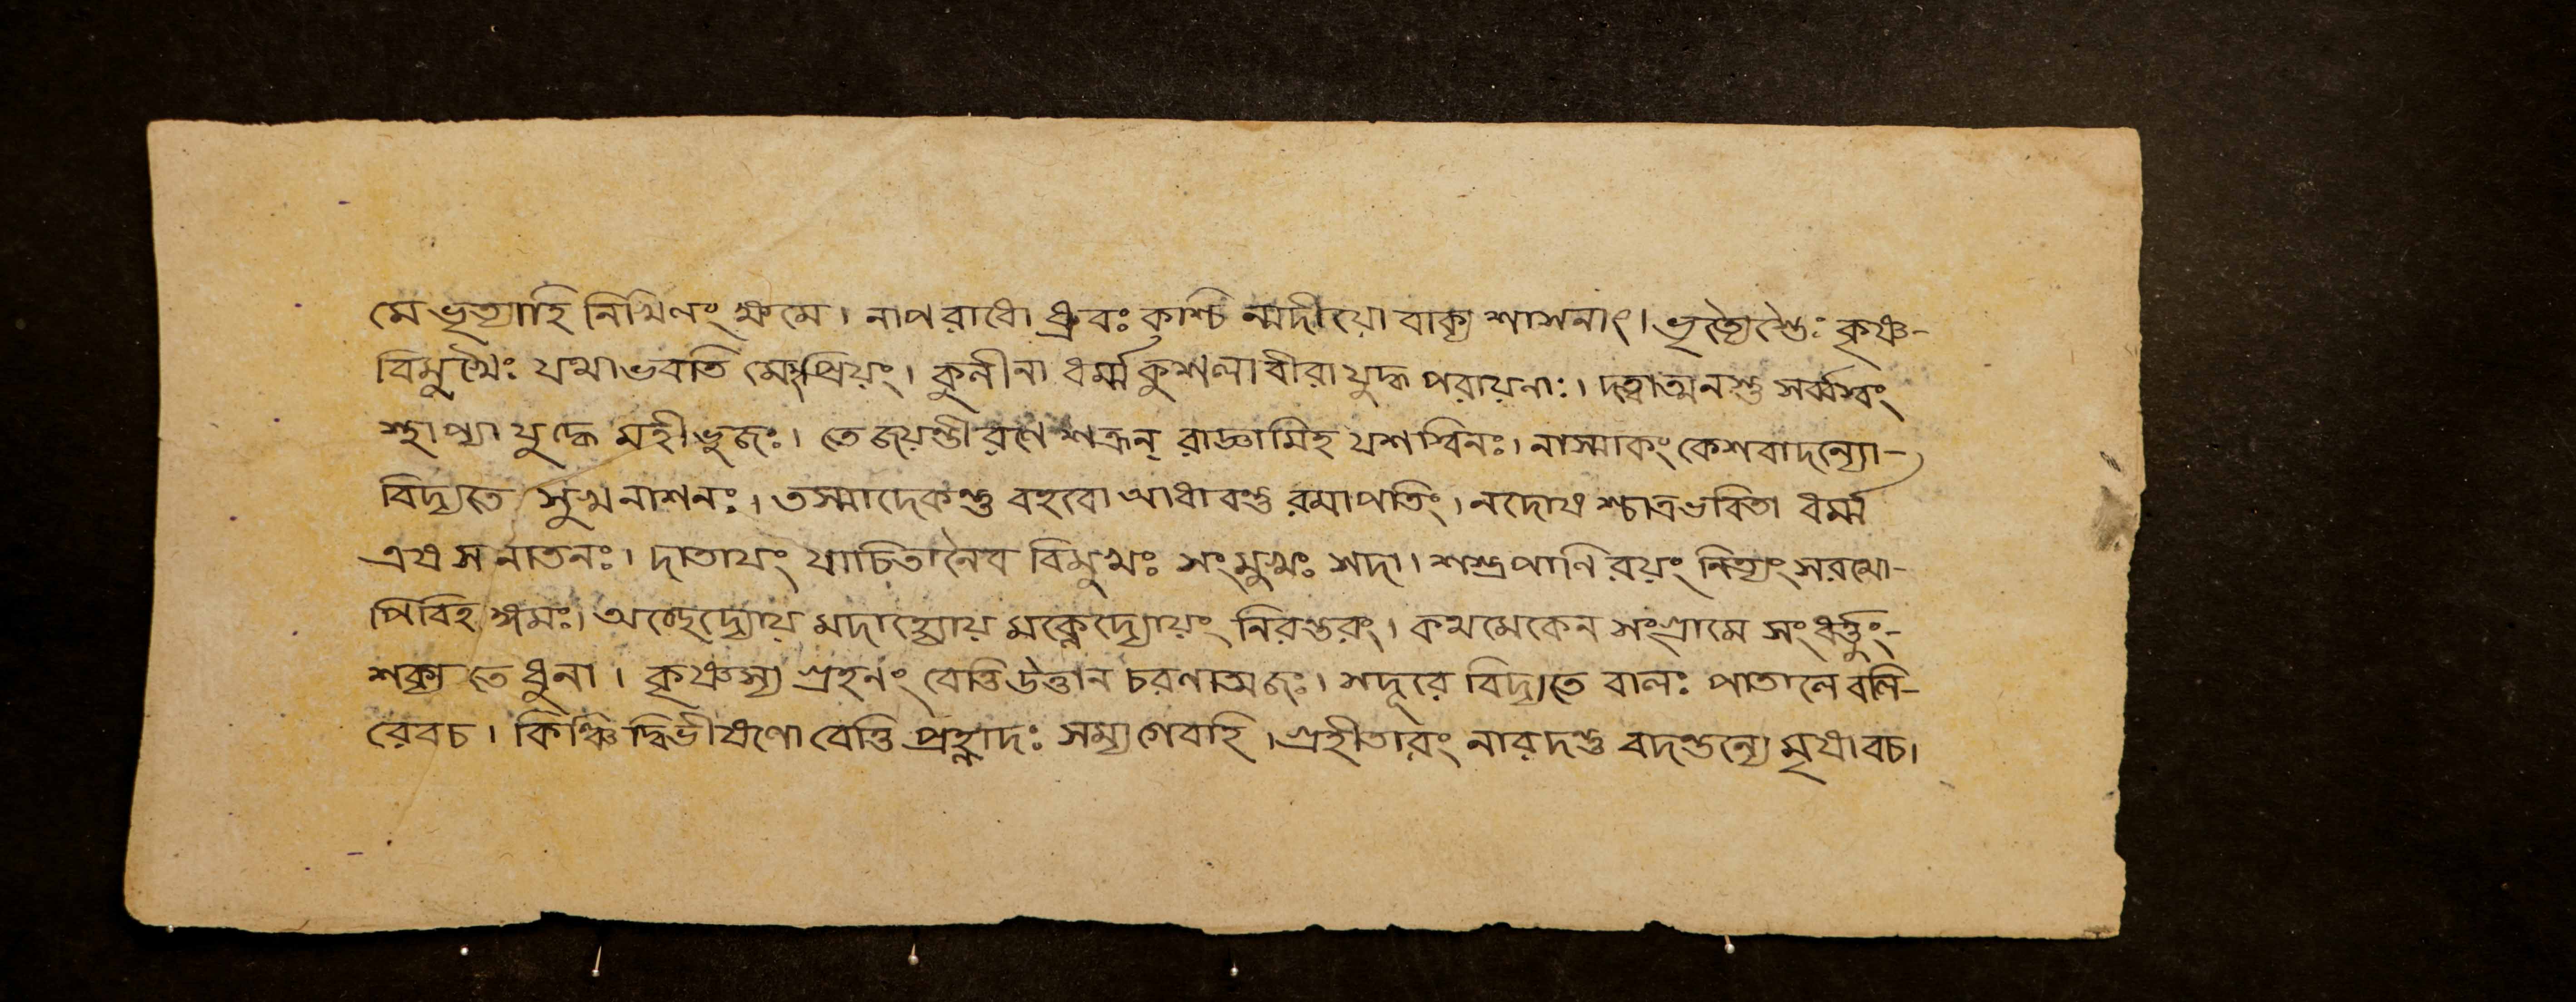 মে ভৃত্যাহি নিখিলং ক্ষমে। নাপরাধো ধ্রুবঃ কশ্চি ন্মদীয়ো বাক্য শাসনাৎ। ভৃত্যৈস্তৈঃ কৃষ্ণ-
বিমুখৈঃ যথাভবতি মেঽপ্রিয়ং। কুলীনা ধর্ম্মকুশলা বীরা যুদ্ধ পরায়নাঃ। দত্বাত্মনস্তু সর্ব্বস্বং
স্থাপ্যা যুদ্ধে মহীভুজঃ। তে জয়ন্তী রণে শত্রূন্ রাজ্ঞামিহ যশস্বিনঃ। নাস্মাকং কেশবাদন্যো-
বিদ্যতে সুখনাশনঃ। তস্মাদেকন্তু বহবো আধাবন্তু রমাপতিং। নদোষ শ্চাত্রভবিতা ধর্ম্ম
এষ সনাতনঃ। দাতাযং যাচিতানৈব বিমুখঃ সংমুখঃ সদা। শস্ত্রপাণি রয়ং নিত্যং সরথো-
পিবিহঙ্গমঃ। অচ্ছেদ্যোয় মদাহ্যোয় মক্লেদ্যোয়ং নিরন্তরং। কথমেকেন সংগ্রামে সংধর্ত্তুং-
শক্য তে ধুনা। কৃষ্ণস্য গ্রহনং বেত্তি উত্তান চরণাত্মজঃ। সদূরে বিদ্যতে বালঃ পাতালে বলি-
রেবচ। কিঞ্চিদ্বিভীষণো বেত্তি প্রহ্লাদঃ সম্যগেবহি। গ্রহীতারং নারদন্তু বদন্তন্যে মৃষাবচ।